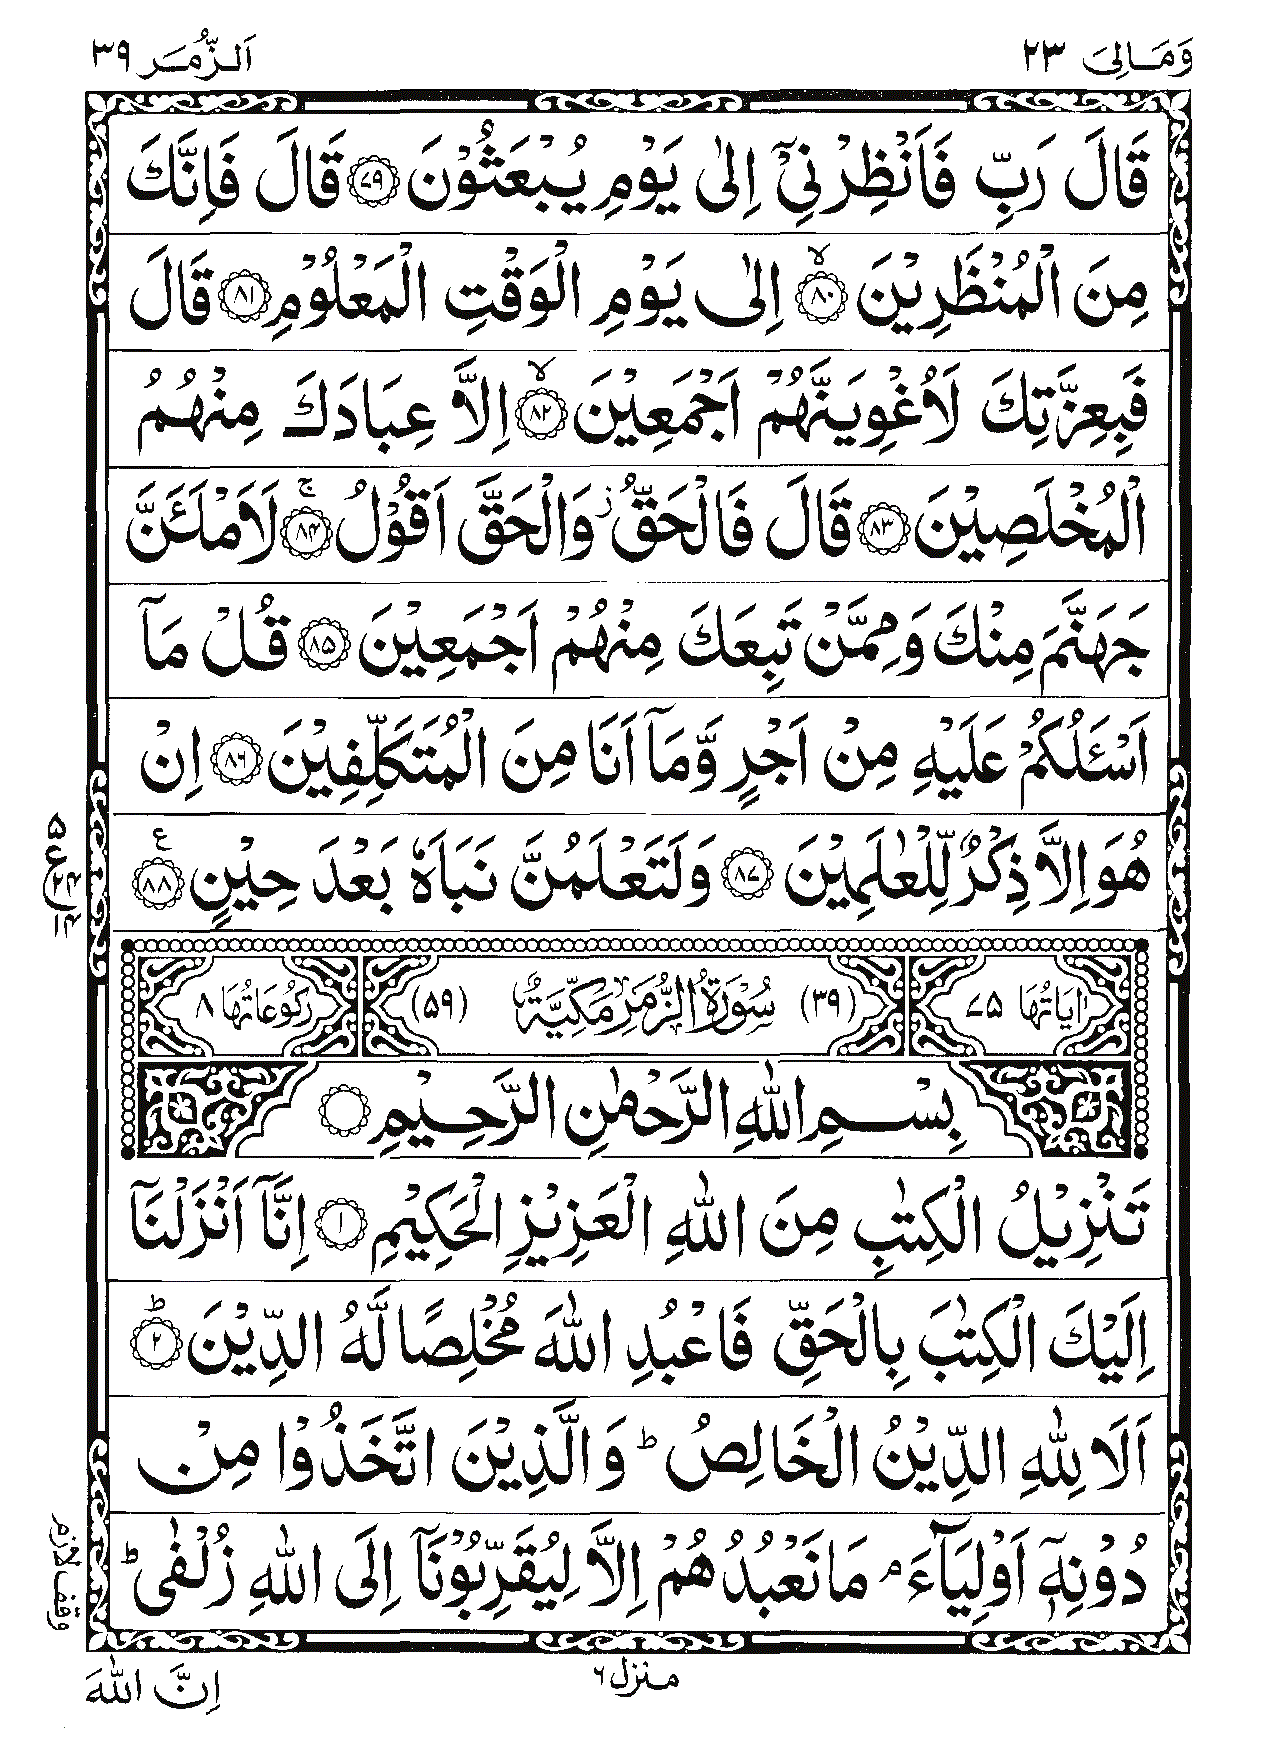 وَمَالِیَ ۲۳
اَلزُّمَر ۳۹
قَالَ رَبِّ فَاَنْظِرْنِیْۤ اِلٰى یَوْمِ یُبْعَثُوْنَ ۝۷۹ قَالَ فَاِنَّكَ
مِنَ الْمُنْظَرِیْنَ ۝۸۰ۙ اِلٰى یَوْمِ الْوَقْتِ الْمَعْلُوْمِ ۝۸۱ قَالَ
فَبِعِزَّتِكَ لَاُغْوِیَنَّهُمْ اَجْمَعِیْنَ ۝۸۲ۙ اِلَّا عِبَادَكَ مِنْهُمُ
الْمُخْلَصِیْنَ ۝۸۳ قَالَ فَالْحَقُّ ؗ وَالْحَقَّ اَقُوْلُ ۝۸۴ۚ لَاَمْلَـَٔنَّ
جَهَنَّمَ مِنْكَ وَمِمَّنْ تَبِعَكَ مِنْهُمْ اَجْمَعِیْنَ ۝۸۵ قُلْ مَاۤ
اَسْـَٔلُكُمْ عَلَیْهِ مِنْ اَجْرٍ وَّمَاۤ اَنَا مِنَ الْمُتَكَلِّفِیْنَ ۝۸۶ اِنْ
هُوَ اِلَّا ذِكْرٌ لِّلْعٰلَمِیْنَ ۝۸۷ وَلَتَعْلَمُنَّ نَبَاَهٗ بَعْدَ حِیْنٍ ۝۸۸ ع
۵
ع
۲۴
۱۴
اٰیَاتُهَا ۷۵ (۳۹) سُوْرَةُ الزُّمَرِ مَكِّیَّةٌ (۵۹) رُكُوْعَاتُهَا ۸
بِسْمِ اللّٰهِ الرَّحْمٰنِ الرَّحِیْمِ ۝
تَنْزِیْلُ الْكِتٰبِ مِنَ اللّٰهِ الْعَزِیْزِ الْحَكِیْمِ ۝۱ اِنَّاۤ اَنْزَلْنَاۤ
اِلَیْكَ الْكِتٰبَ بِالْحَقِّ فَاعْبُدِ اللّٰهَ مُخْلِصًا لَّهُ الدِّیْنَ ۝۲ؕ
اَلَا لِلّٰهِ الدِّیْنُ الْخَالِصُ ؕ وَالَّذِیْنَ اتَّخَذُوْا مِنْ
دُوْنِهٖۤ اَوْلِیَآءَ ۘ مَا نَعْبُدُهُمْ اِلَّا لِیُقَرِّبُوْنَاۤ اِلَى اللّٰهِ زُلْفٰى ؕ
وقف لازم
منزل ۶
اِنَّ اللّٰهَ